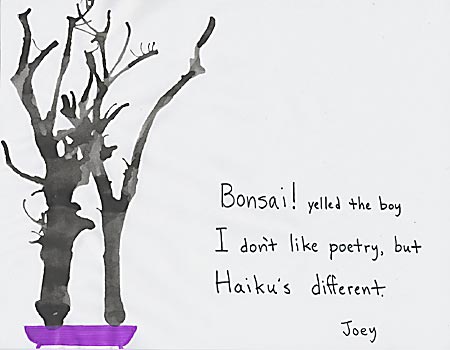 Bonsai! yelled the boy
I don't like poetry, but
Haiku's different.
Joey